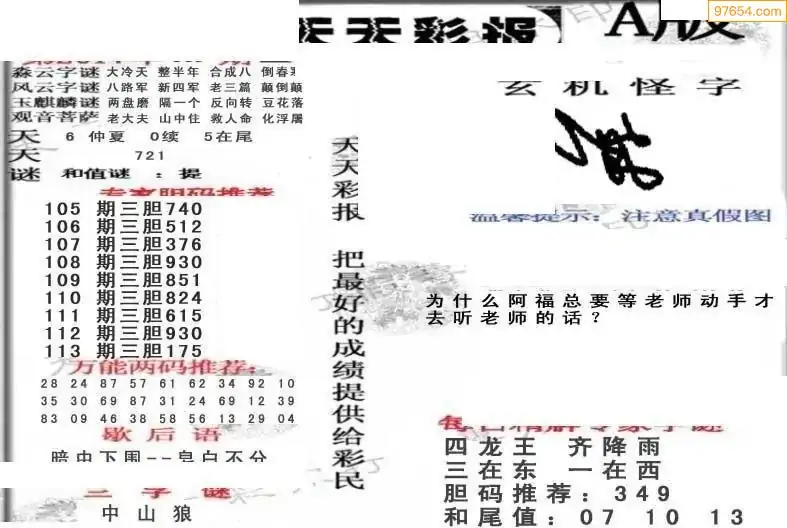 97654.com
天天彩报 A版
淼云字谜 大冷天 整半年 合成八 倒春寒
风云字谜 八路军 新四军 老三篇 颠倒颠
玉麒麟谜 两盘磨 隔一个 反向转 豆花落
观音菩萨 老大夫 山中住 救人命 化浮屠
天 6 仲夏 0续 5在尾
天 721
谜 和值谜 : 提
专家胆码推荐
105 期三胆740
106 期三胆512
107 期三胆376
108 期三胆930
109 期三胆851
110 期三胆824
111 期三胆615
112 期三胆930
113 期三胆175
万能两码推荐:
28 24 87 57 61 62 34 92 10
35 30 69 87 31 24 69 12 39
83 09 46 38 58 56 13 29 04
歇后语
暗中下围--皂白不分
三字谜
中山狼
天天彩报 把最好的成绩提供给彩民
玄机怪字
温馨提示: 注意真假图
为什么阿福总要等老师动手才
去听老师的话?
每日精解专家字谜
四龙王 齐降雨
三在东 一在西
胆码推荐: 349
和尾值: 07 10 13